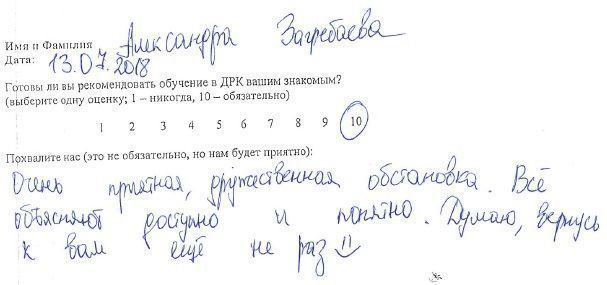 Имя и Фамилия Александра Загребаева
Дата: 13.07.2018
Готовы ли вы рекомендовать обучение в ДРК вашим знакомым?
(выберите одну оценку; 1 – никогда, 10 – обязательно)
1 2 3 4 5 6 7 8 9 10
Похвалите нас (это не обязательно, но нам будет приятно):
Очень приятная, дружественная обстановка. Всё
объясняют доступно и понятно. Думаю, вернусь
к вам ещё не раз